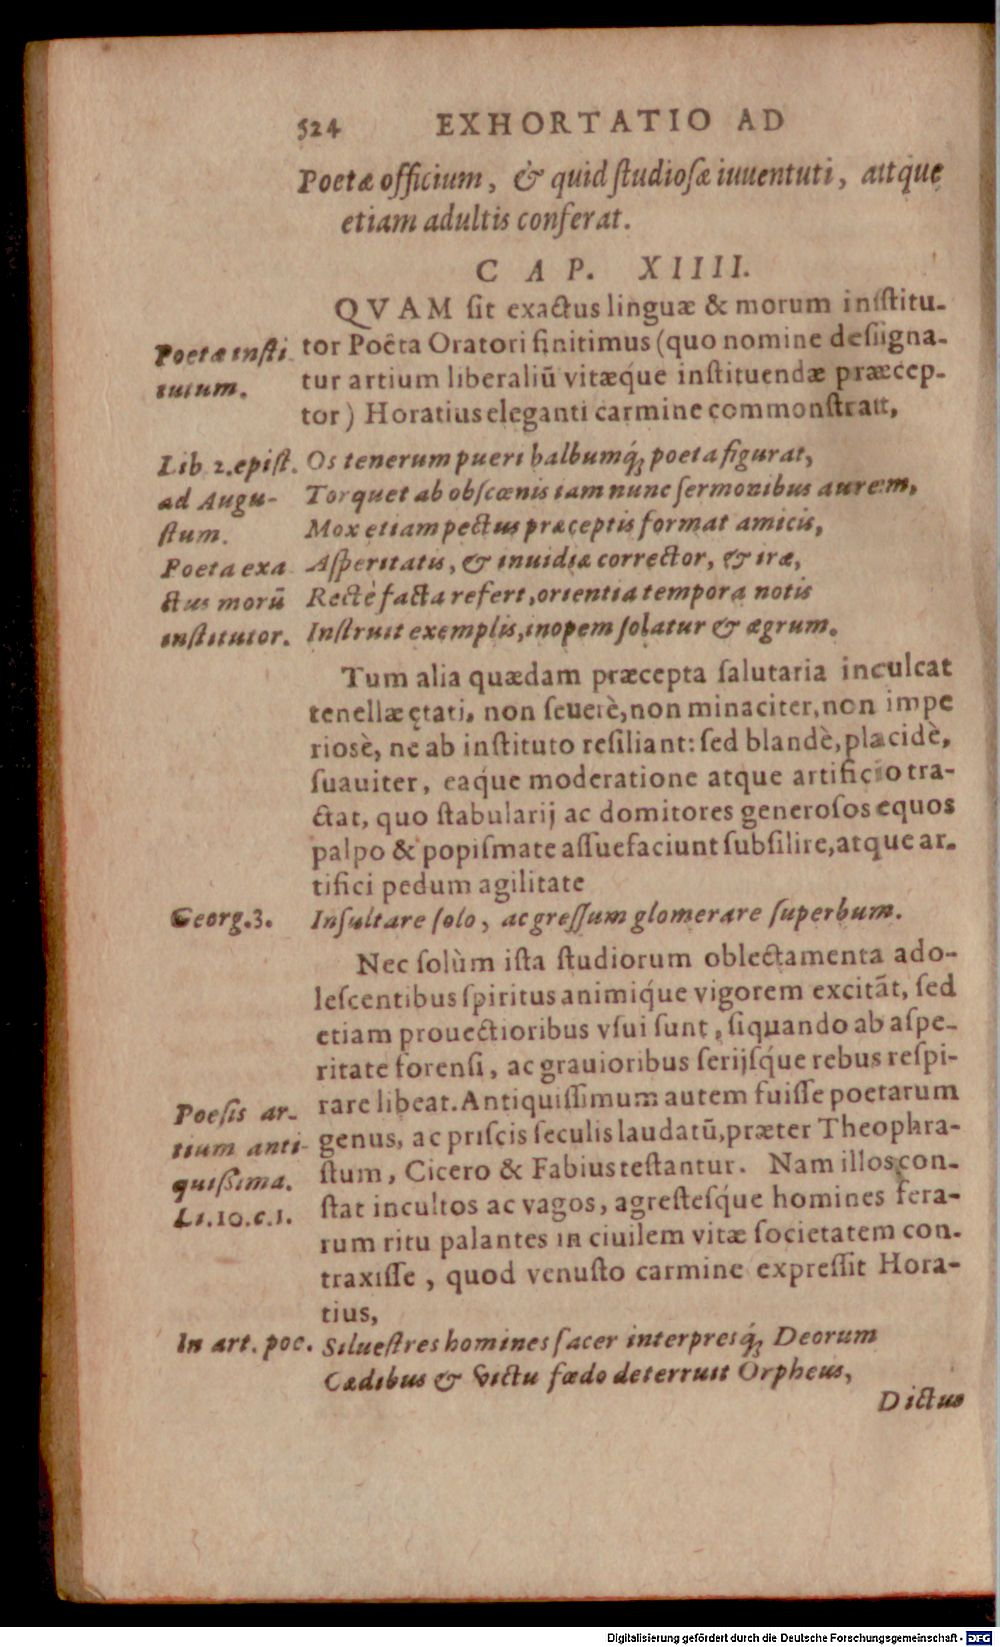 524 EXHORTATIO AD
Poetæ officium, & quid ſtudioſæ iuuentuti, attq́ue
etiam adultis conferat.
CAP. XIIII.
QVAM ſit exactus linguæ & morum inſtitu-
Poetæ inſti-
tutum.
tor Poêta Oratori finitimus (quo nomine deſigna-
tur artium liberaliū vitæq́ue inſtituendæ præcep-
tor) Horatius eleganti carmine commonſtratt,
Lib 2. epiſt.
ad Augu-
ſtum.
Os tenerum pueri balbumq́; poeta figurat,
Torquet ab obſcœnis iam nunc ſermonibus aurem,
Mox etiam pectus præceptis format amicis,
Poeta exa
ctus morū
inſtitutor.
Aſperitatis, & inuidiæ corrector, & iræ,
Rectè facta refert, orientia tempora notis
Inſtruit exemplis, inopem ſolatur & ægrum.
Tum alia quædam præcepta ſalutaria inculcat
tenellæ ętati, non ſeuerè, non minaciter, non impe
riosè, ne ab inſtituto reſiliant: ſed blandè, placidè,
ſuauiter, eaq́ue moderatione atque artificio tra-
ctat, quo ſtabularij ac domitores generoſos equos
palpo & popiſmate aſſuefaciunt ſubſilire, atque ar-
tifici pedum agilitate
Georg. 3.
Inſultare ſolo, ac greſſum glomerare ſuperbum.
Nec ſolùm iſta ſtudiorum oblectamenta ado-
leſcentibus ſpiritus animiq́ue vigorem excitāt, ſed
etiam prouectioribus vſui ſunt, ſiquando ab aſpe-
ritate forenſi, ac grauioribus ſerijſq́ue rebus reſpi-
Poeſis ar-
tium anti-
quiſſima.
Li. 10. c. 1.
rare libeat. Antiquiſſimum autem fuiſſe poetarum
genus, ac priſcis ſeculis laudatū, præter Theophra-
ſtum, Cicero & Fabius teſtantur. Nam illos con-
ſtat incultos ac vagos, agreſteſq́ue homines fera-
rum ritu palantes in ciuilem vitæ ſocietatem con-
traxiſſe, quod venuſto carmine expreſſit Hora-
tius,
In art. poe.
Silueſtres homines ſacer interpresq́; Deorum
Cædibus & victu fœdo deterruit Orpheus,
Dictus
Digitalisierung gefördert durch die Deutsche Forschungsgemeinschaft - DFG